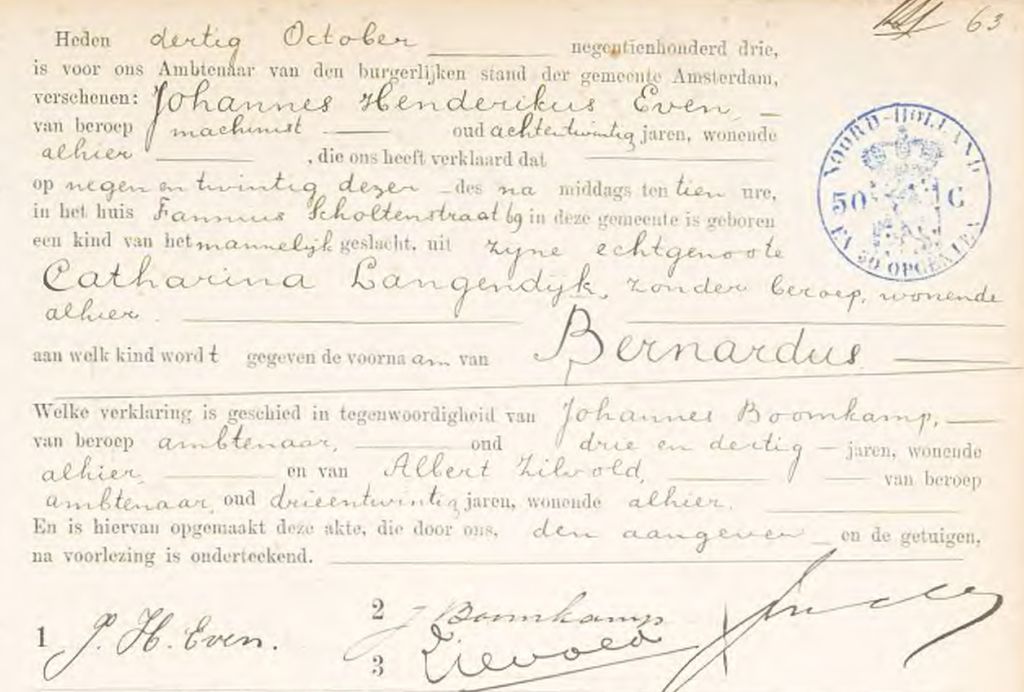 63
Heden dertig October negentienhonderd drie,
is voor ons Ambtenaar van den burgerlijken stand der gemeente Amsterdam,
verschenen: Johannes Henderikus Even,
van beroep machinist oud achtentwintig jaren, wonende
alhier , die ons heeft verklaard dat
op negen en twintig dezer des na middags ten tien ure,
in het huis Fannius Scholtenstraat 69 in deze gemeente is geboren
een kind van het mannelijk geslacht, uit zijne echtgenoote
Catharina Langendijk, zonder beroep, wonende
alhier.
aan welk kind wordt gegeven de voornaam van Bernardus
NOORD-HOLLAND
50 C
EN 50 OPCENTEN
Welke verklaring is geschied in tegenwoordigheid van Johannes Boomkamp,
van beroep ambtenaar, oud drie en dertig jaren, wonende
alhier, en van Albert Zilvold, van beroep
ambtenaar, oud drieentwintig jaren, wonende alhier.
En is hiervan opgemaakt deze akte, die door ons, den aangever en de getuigen,
na voorlezing is onderteekend.
1 J. H. Even.
2 J Boomkamp
3 Zilvold